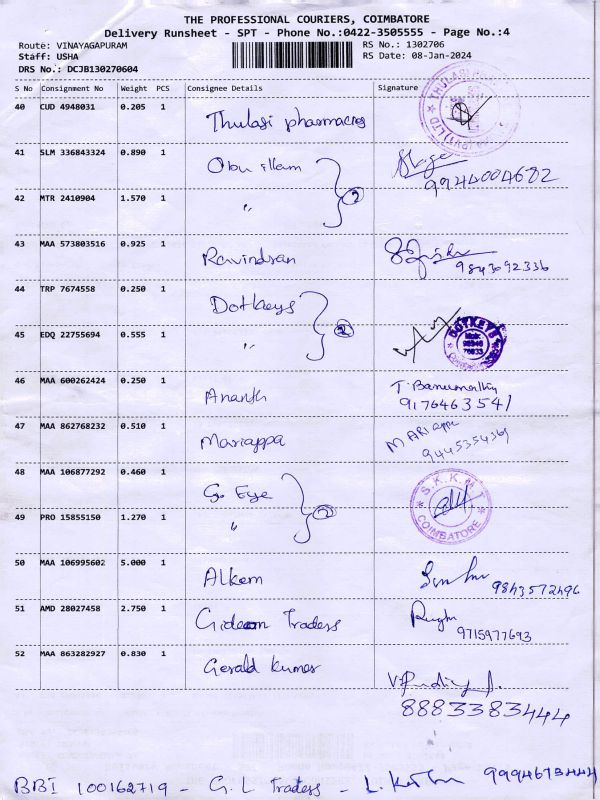 THE PROFESSIONAL COURIERS, COIMBATORE
Delivery Runsheet - SPT - Phone No.:0422-3505555 - Page No.:4
Route: VINAYAGAPURAM RS No.: 1302706
Staff: USHA RS Date: 08-Jan-2024
DRS No.: DCJB130270604
S No Consignment No Weight PCS Consignee Details Signature
40 CUD 4948031 0.205 1 Thulasi pharmacies
41 SLM 336843324 0.890 1 Obu illam 9944004682
42 MTR 2410904 1.570 1 〃 2
43 MAA 573803516 0.925 1 Ravindran 9843092336
44 TRP 7674558 0.250 1 Dotkeys
45 EDQ 22755694 0.555 1 〃 2 DOTKEYS
46 MAA 600262424 0.250 1 Ananth T. Banumathy
9176463541
47 MAA 862768232 0.510 1 Mariappa MARiappa
9445354369
48 MAA 106877292 0.460 1 Go Eye S.K.K.M.I
49 PRO 15855150 1.270 1 〃 2 COIMBATORE
50 MAA 106995602 5.000 1 Alkem 9843572496
51 AMD 28027458 2.750 1 Gideon Traders 9715977693
52 MAA 863282927 0.830 1 Gerald Kumar
8883383444
BBI 100162719 - G. L Traders - 9994673444